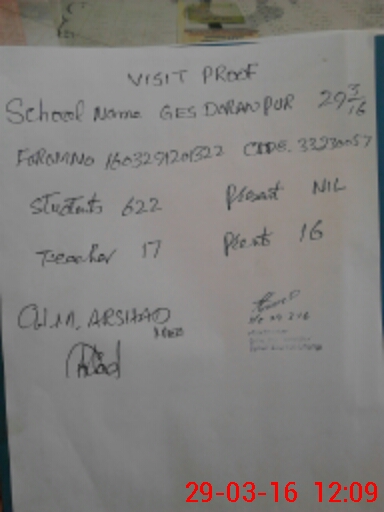 VISIT PROOF
School Name GES DURANPUR 29 3/16
FORM NO 1603291201322 CODE. 33230057
Students 622 Present NIL
Teacher 17 Present 16
CH.M. ARSHAD
29-03-16 12:09